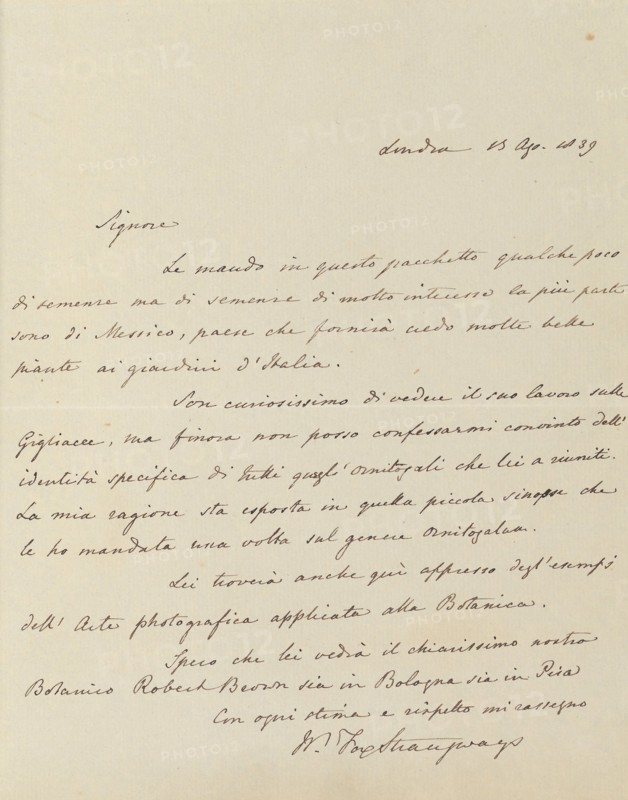 Londra 13 Ago. 1839
Signore
Le mando in questo pacchetto qualche poco
di semenze ma di semenze di molto interesse la più parte
sono di Messico, paese che fornirà credo molte belle
piante ai giardini d'Italia.
Son curiosissimo di vedere il suo lavoro sulle
Gigliacee, ma finora non posso confessarmi convinto dell'
identità specifica di tutti quegl' ornitogali che lei a riuniti.
La mia ragione sta esposta in quella piccola sinopse che
le ho mandata una volta sul genere Ornitogalum.
Lei troverà anche quì appresso degl' esempi
dell' Arte photografica applicata alla Botanica.
Spero che lei vedrà il chiarissimo nostro
Botanico Robert Brown sia in Bologna sia in Pisa
Con ogni stima e rispetto mi rassegno
W. Fox Strangways